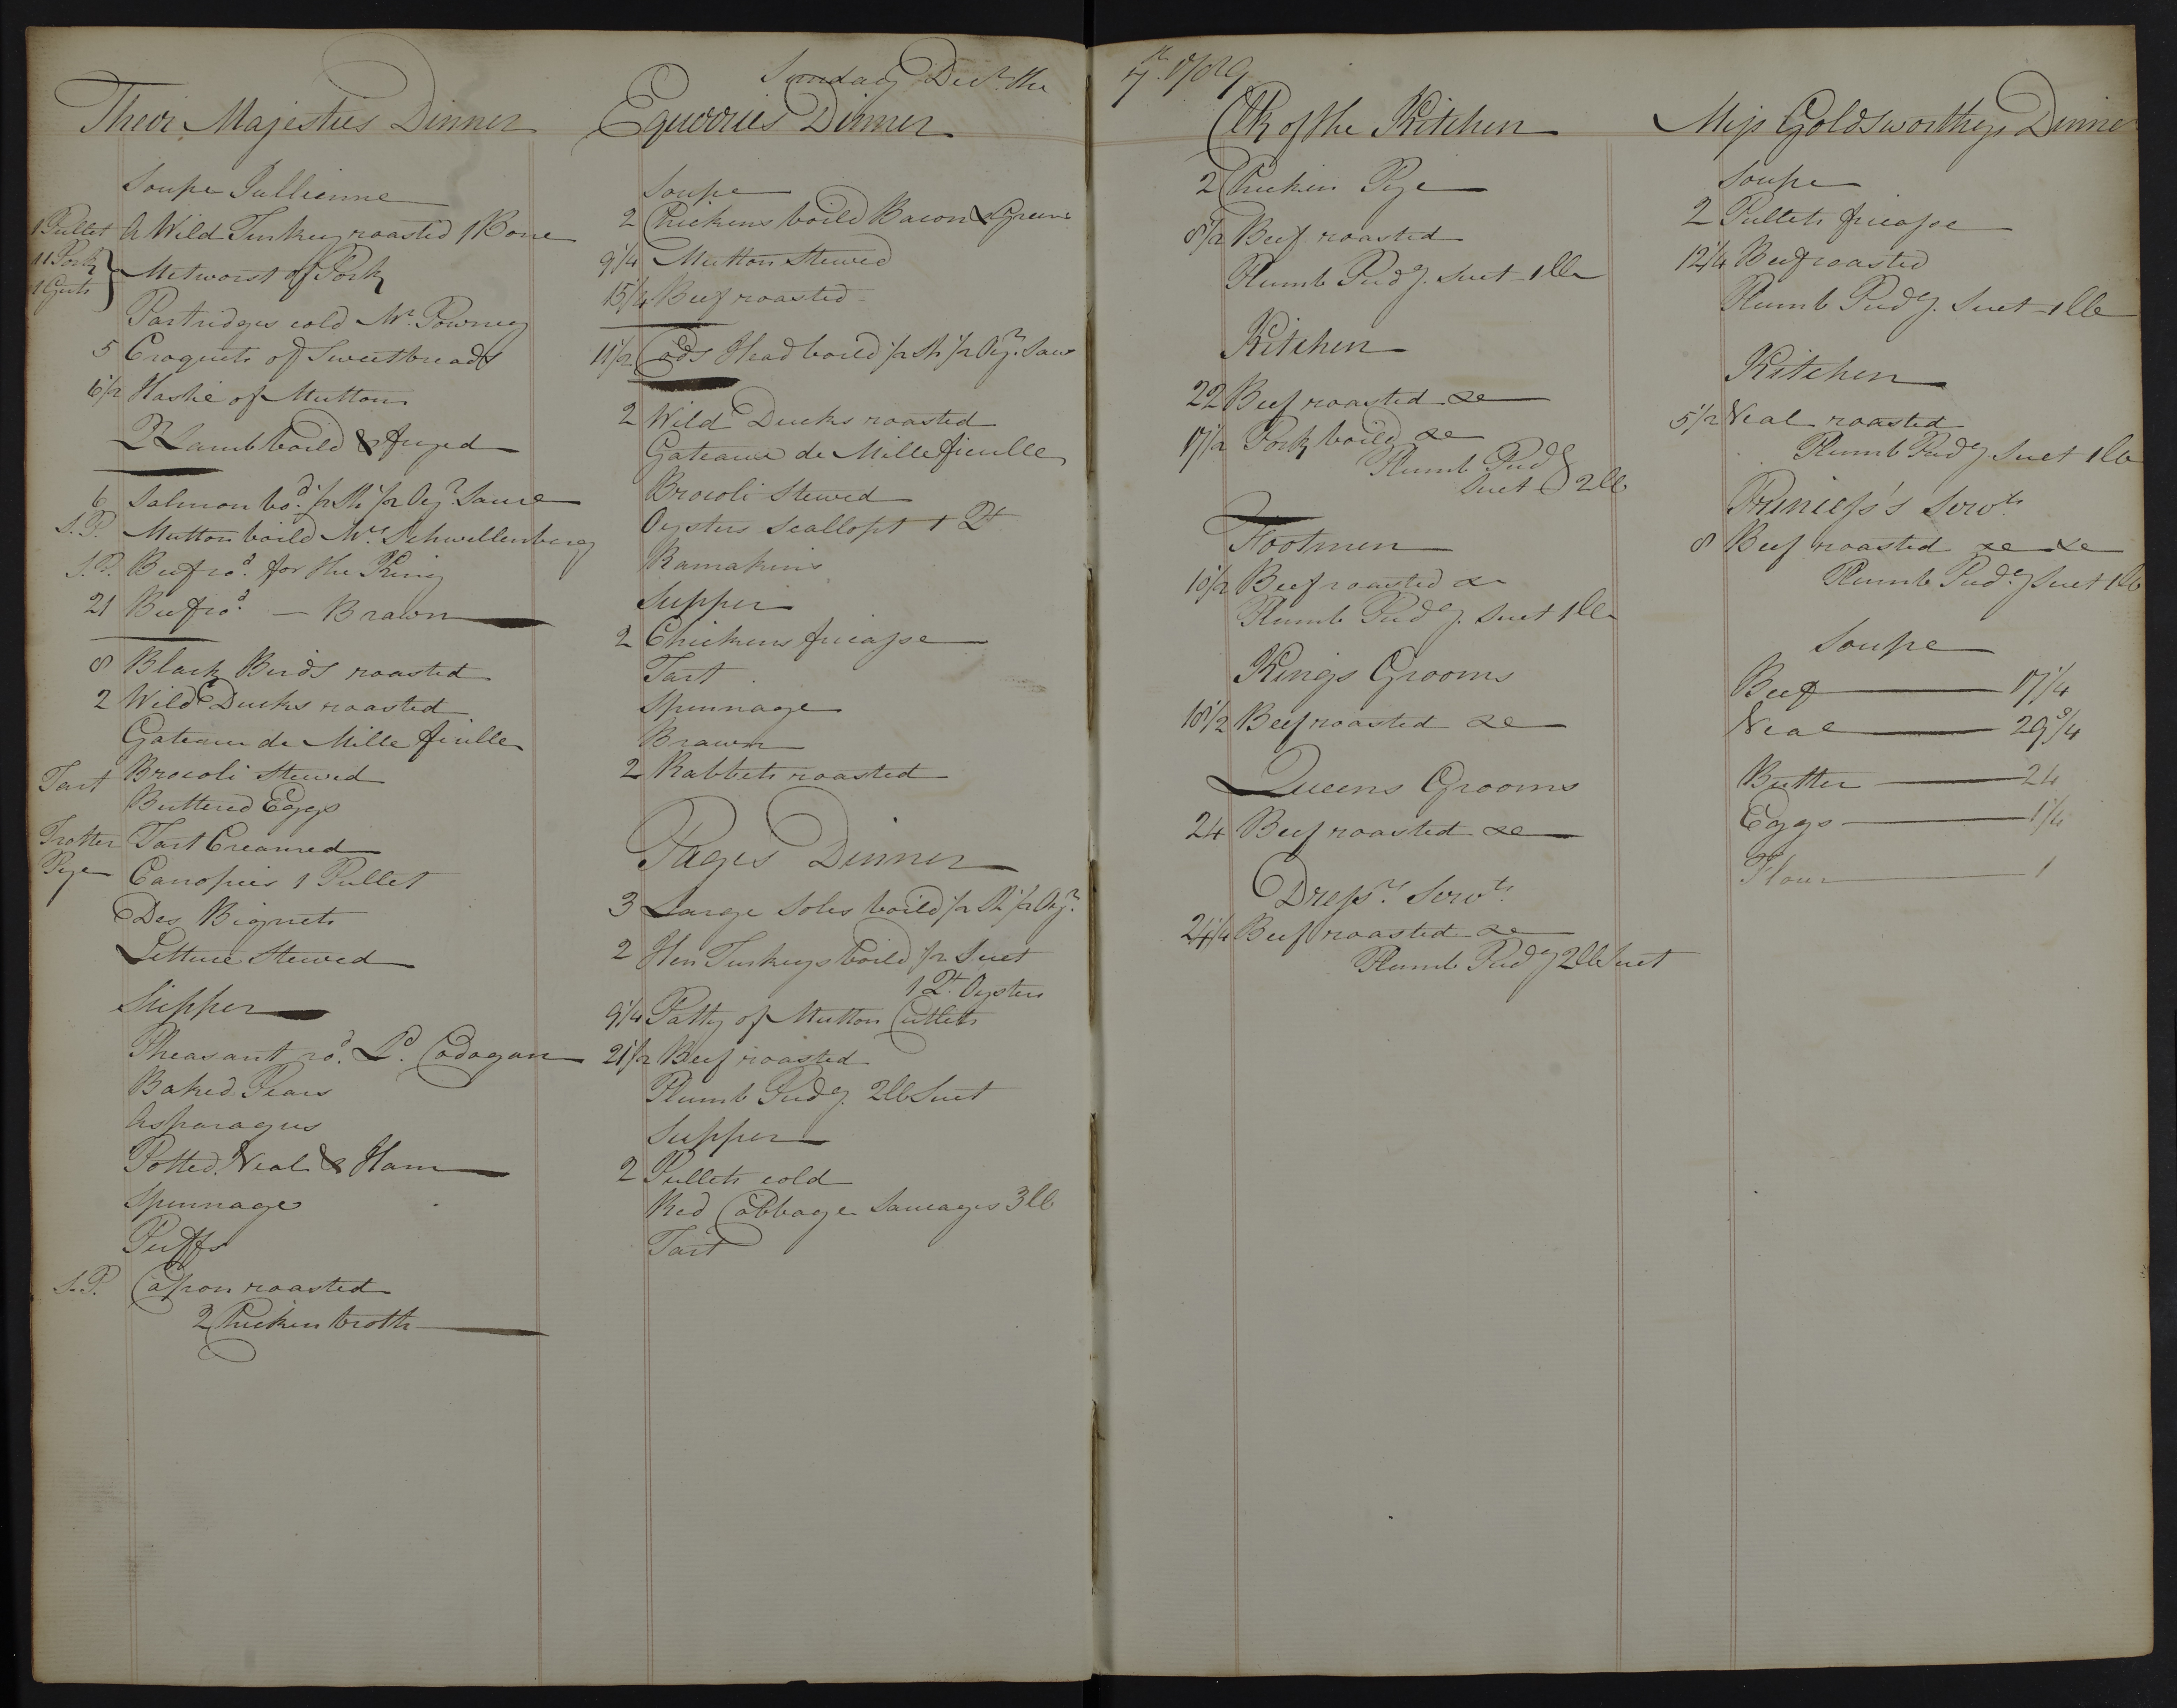 Sunday Decr. the 7th. 1789
Their Majesties Dinner
Soupe Jullienne
1 Pullet A Wild Turkey roasted 1 Bone
11 Pork
1 Guts } Metworst of Pork
Partridges cold Mr. Powney
5 Croquets of Sweetbreads
6 1/2 Hashé of Mutton
Qr Lamb boild & fryed
6 Salmon bod. 1/2 Sh 1/2 Oyr. Sauce
S.P. Mutton boild Ms. Schwellenberg
S.P. Beef rod. for the King
21 Beef rod. — Brawn
8 Black Birds roasted
2 Wild Ducks roasted
Gateau de Mille fieulle
Tart Brocoli Stewed
Buttered Eggs
Trotter Tart Creamed
Pye Canopies 1 Pullet
Des Bignets
Lettuce Stewed
Supper
Pheasant rod. Ld. Cadogan
Baked Pears
Asparagus
Potted Veal & Ham
Spinnage
Puffs
S.P. Capon roasted
2 Chicken broth
Equerries Dinner
Soupe
2 Chickens boild Bacon & Greens
9 1/4 Mutton Stewed
15 1/4 Beef roasted
11 1/2 Cods Head boild 1/2 Sh 1/2 Oyr. Sauce
2 Wild Ducks roasted
Gateaux de Mille fieulle
Brocoli Stewed
Oysters Scallopt 1 Qt
Ramakins
Supper
2 Chickens fricasse
Tart
Spinnage
Brawn
2 Rabbets roasted
Pages Dinner
3 Large Soles boild 1/2 Sh 1/2 Oyr.
2 Hen Turkeys boild 1/2 Suet
1 Qt. Oysters
9 1/4 Patty of Mutton Cutlets
21 1/2 Beef roasted
Plumb Pudg. 2lb Suet
Supper
2 Pullets cold
Red Cabbage Saucages 3lb
Tart
Clk of the Kitchen
2 Chicken Pye
8 1/2 Beef roasted
Plumb Pudg. Suet 1lb
Kitchen
22 Beef roasted &c
17 1/2 Pork boild &c
Plumb Pudg
Suet } 2lb
Footmen
18 1/2 Beef roasted &c
Plumb Pudg. Suet 1lb
Kings Grooms
18 1/2 Beef roasted &c
Queens Grooms
24 Beef roasted &c
Dressrs. Servts.
24 1/4 Beef roasted &c
Plumb Pudg 2lb Suet
Miss Goldsworthys Dinner
Soupe
2 Pullets fricasse
12 1/4 Beef roasted
Plumb Pudg. Suet 1lb
Kitchen
5 1/2 Veal roasted
Plumb Pudg. Suet 1lb
Princess's Servts
8 Beef roasted &c &c
Plumb Pudg Suet 1lb
Soupe
Beef — 17 1/4
Veal — 29 3/4
Butter — 24
Eggs — 1/4
Flour — 1